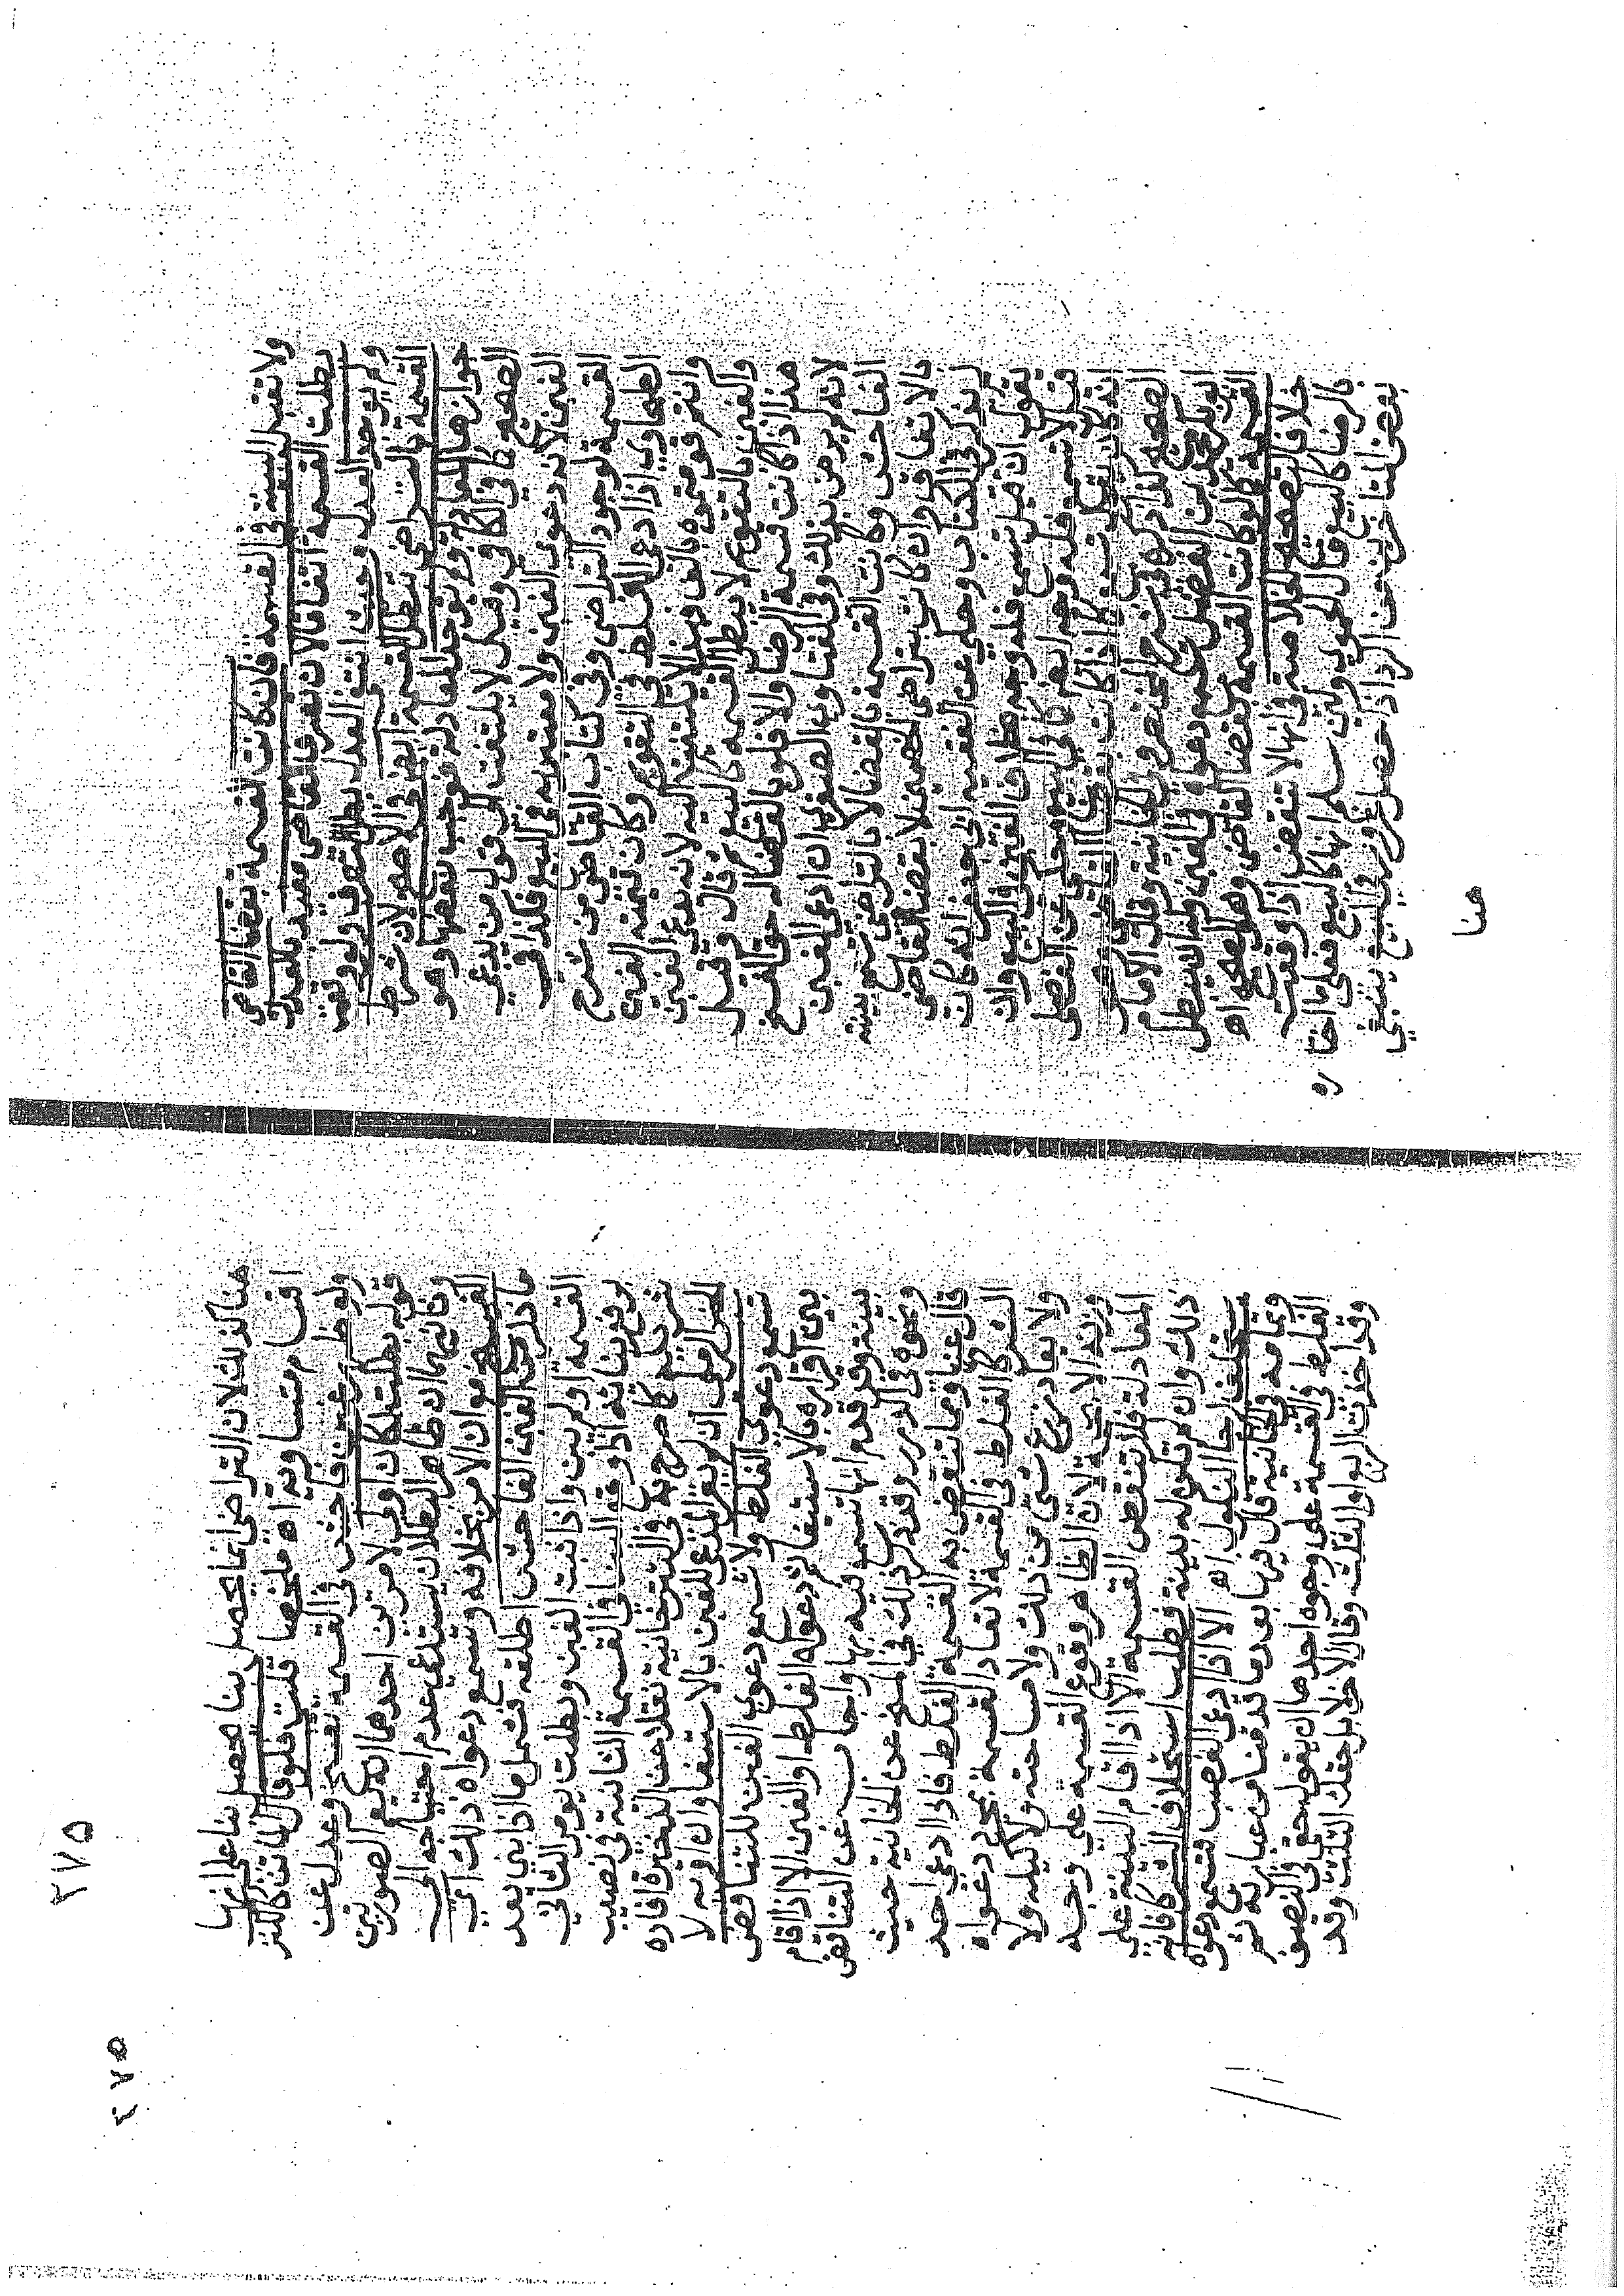 ولا تقبل البينة في القسمة فان كانت القسمة بقضا القاضي
بطلت القسمة اتفاقا لان تصرف القاضي مقيد بالعدل
ولم يوجد العدل وحيث انتفى العدل بطل التصرف ولو وقعت
القسمة بالتراضي تبطل القسمة ايضا في الاصح لان شرط
جوازها المعادلة ولم توجد المعادلة فوجب نقضها وهو
الصحيح كما في الكافي وقيل لا يلتفت الى قول من يدعي
الغبن لانه دعوى الغبن ولا معتبر به في البيع فكذا في
القسمة لوجود التراضي وفي كتاب القاضي من شرح
الطحاوي اذا ادعى الغلط في التقويم وكان قيمته الفين
وانتم قومتموه بالف وهذا لا يلتفت اليه لانه يدعي الغبن
والغبن بالتقويم لا يبطل القسمة كالبيع وقال وقيل
هذا اذا كانت قسمة الرضا ولا فلو بالقضا له حق الفسخ
لانه لم يرض بذلك وفي الفتاوى الصغرى ان ادعى الغبن
الفاحش وكانت القسمة بالقضا لا بالتراضي تسمع بينته
بالاتفاق وان كانت بتراضي الخصمين لا بقضا القاضي
لم يذكر في الكتاب وحكي عن الفقيه ابي جعفر انه كان
يقول ان قيل تسمع فله وجه كما في الغبن في البيع وان
قيل لا تسمع فله وجه ايضا كما في البيع وحكي عن الفضلي
انه كان يقول تسمع كما اذا كانت بقضا القاضي وهو
الصحيح كذا ذكره في شرح المختصر وفي الخانية وقال الامام
ابو بكر محمد بن الفضل تسمع دعواه في الغبن وله ان يبطل
القسمة كما لو كانت القسمة بقضا القاضي وهو الصحيح اه
خلافا لتصحيح الخلاصة في انها لا تنقض اذا وقعت
بالرضا كالبيع قال الحموي ولئن سلم انها كالبيع فعلى ما اختاره
بعض المتاخرين من الرد اذا حصل غرور في البيع ينبغي
هنا
٢٧٥
٢٧٥
هنا كذلك لان التراضي انما يحصل بنا على انها
اقسام متساوية اه ملخصا قلت فلو قال الماتن كالكنز
ولو ظهر غبن فاحش في القسمة تفسخ وعدل عن
قوله بطلت لكان اولى لامرين احدهما انه يعم الصورتين
وثانيهما ان ظاهر البطلان يستدعي عدم احتياجه الى
الفسخ هو ان الامر بخلافه وتسمع دعواه ذلك اي
ما ذكر من الغبن الفاحش اطلقه فشمل ما اذا بني بعد
القسمة او لم يبن واذا ثبت الغبن وبطلت يومر الثاني
برفع بنائه اذا وقع البنا في القسمة الثانية في نصيب
شريكه كما صرح به في التترخانية نقلا عن الذخيرة افاده
المنز الرملي ان لم يقر المدعي للغبن بالاستيفا وان اقر به لا
تسمع دعوى الغلط ولا تسمع دعوى الغبن للتناقض
بين اقراره بالاستيفا ثم دعواه الغلط او الغبن الا اذا اقام
بينة وقد قدم انها تسمع فيه بها واجاب عن التناقض
ونحوه في الدرر وقد ذكر ذلك في المنح عن الخانية حيث
قال عنها ومما تنقض به القسمة الغلط فاذا ادعى احد
الشركا الغلط في القسمة لا تعاد القسمة بمجرد دعواه
ولا يعاد ذرع شي من ذلك ولا مساحته ولا كيله ولا
وزنه الا بحجة لان الظاهر وقوع القسمة على وجه
المعادلة فلا تنقض القسمة الا اذا اقام البينة على
ذلك وان لم تكن له بينة فطلب استحلاف الشركا فانه
يستحلف رجا النكول اه الا اذا ادعى الغصب فتسمع دعواه
وتمامه في الخانية قال فيها بعد ما قدمناه من عبارته ثم
الغلط في القسمة على وجوه احدها ان يقول حقي النصف
وقد اخذت الربع او الثلث وقال الاخر لا بل حقك الثلث وقد